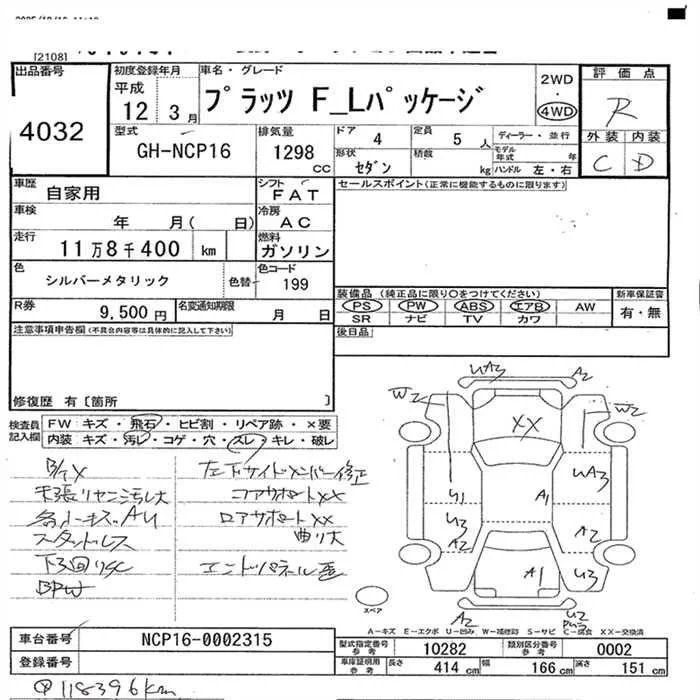 [2108]
出品番号
4032
初度登録年月
平成
12 3月
車名・グレード
プラッツ F_Lパッケージ
2WD
・
4WD
評価点
R
外装 内装
C D
型式
GH-NCP16
排気量
1298
CC
ドア
4
定員
5人
形状
セダン
積数
kg
ディーラー・並行
モデル年式 年
ハンドル 左・右
車歴
自家用
シフト
FAT
車検
年 月( 日)
冷房
AC
走行
11万8千400 km
燃料
ガソリン
色
シルバーメタリック
色替
色コード
199
R券
9,500円
名変通知期限
月 日
セールスポイント(正常に機能するものに限ります)
装備品 (純正品に限り○をつけてください)
PS PW ABS エアB AW
SR ナビ TV カワ
新車保証書
有・無
後日品
注意事項申告欄(不具合内容等は具体的に記入して下さい)
修復歴 有〔箇所 〕
検査員
記入欄
FW キズ・飛石・ヒビ割・リペア跡・×要
内装 キズ・汚レ・コゲ・穴・スレ・キレ・破レ
スタッドレス
BPW
左下サイドメンバー修正
コアサポートXX
ロアサポートXX
曲リ大
UA3
A2
W2
XX
W2
UA3
U1
A1
U3
A2
A2
A1
U3
A2
U2
スペア
A-キズ E-エクボ U-凹み W-補修跡 S-サビ C-腐食 XX-交換済
車台番号
NCP16-0002315
登録番号
型式指定番号
参考
10282
類別区分番号
参考
0002
車庫証明用
参考
長さ 414 cm 幅 166 cm 高さ 151 cm
118396km